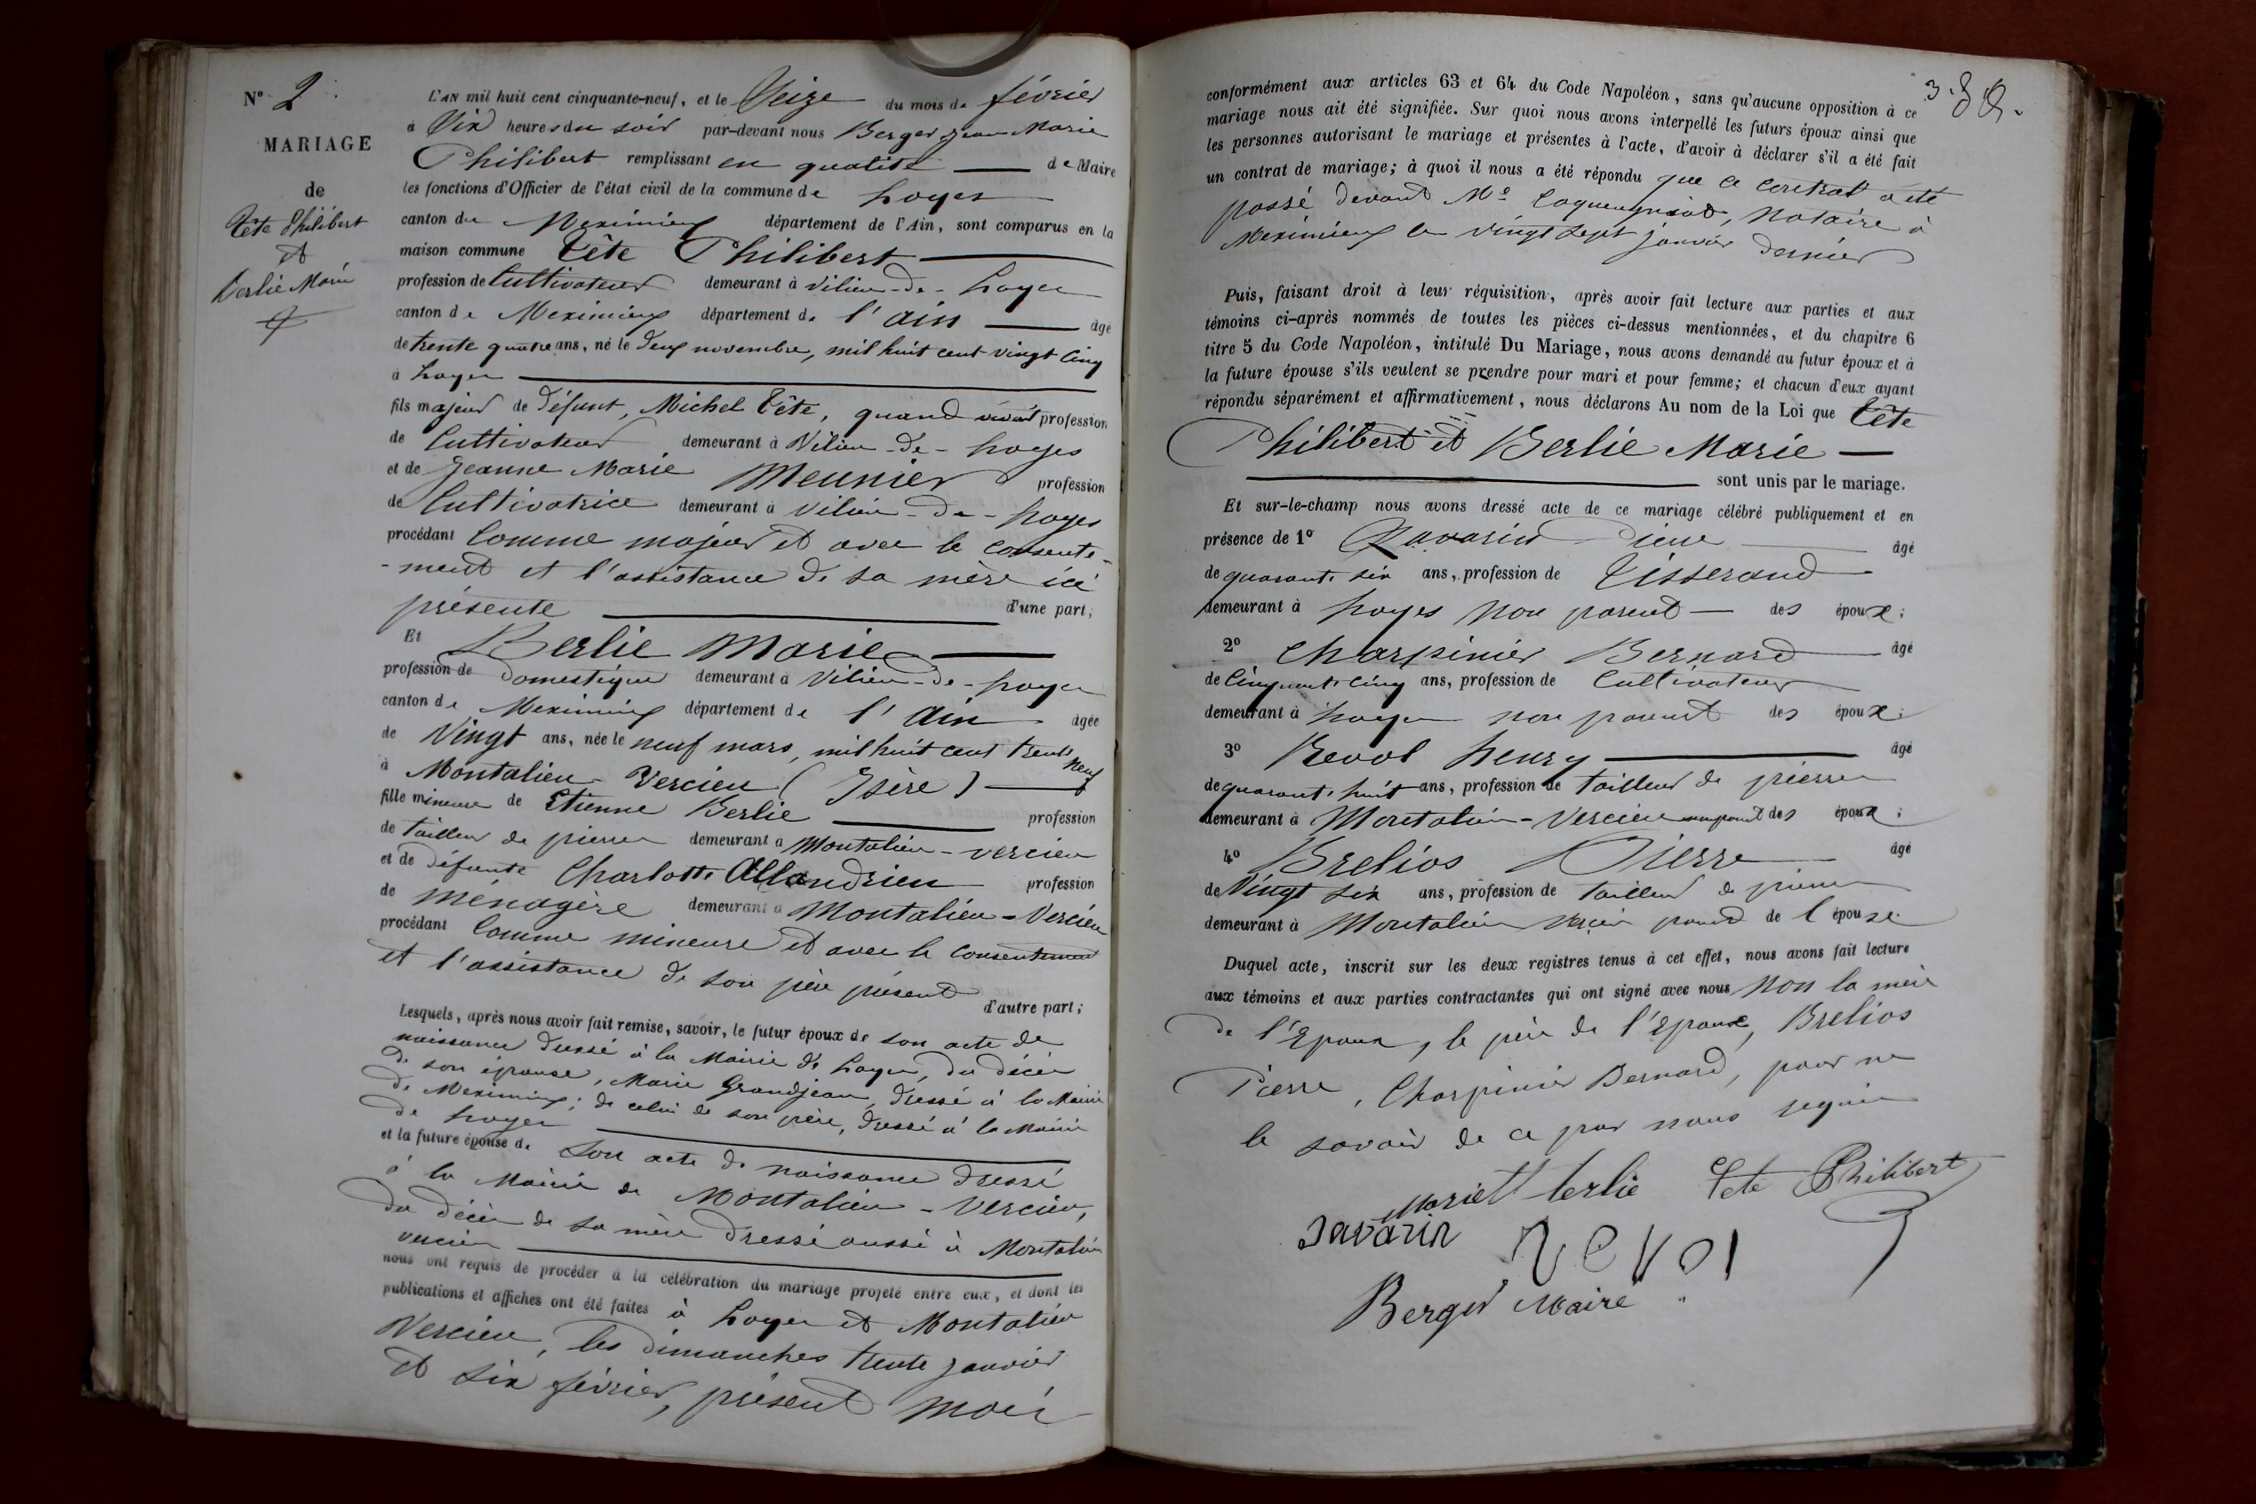 N° 2
MARIAGE
de
Tête Philibert
et
Berlie Marie
L'AN mil huit cent cinquante-neuf, et le Seize du mois de février
à Six heures du soir par-devant nous Berger Jean Marie
Philibert remplissant en qualité de Maire
les fonctions d'Officier de l'état civil de la commune de Loyes
canton de Meximieux département de l'Ain, sont comparus en la
maison commune Tête Philibert
profession de Cultivateur demeurant à Vilieu-de-Loyes
canton de Meximieux département de l'Ain âgé
de trente quatre ans, né le deux novembre, mil huit cent vingt cinq
à Loyes
fils majeur de défunt, Michel Tête, quand vivait profession
de Cultivateur demeurant à Vilieu-de-Loyes
et de Jeanne Marie Meunier profession
de Cultivatrice demeurant à Vilieu-de-Loyes
procédant Comme majeur et avec le consente-
-ment et l'assistance de sa mère ici
présente d'une part;
Et Berlie Marie
profession de domestique demeurant à Vilieu-de-Loyes
canton de Meximieux département de l'Ain âgée
de Vingt ans, née le neuf mars, mil huit cent trente neuf
à Montalieu-Vercieu (Isère)
fille mineure de Etienne Berlie profession
de tailleur de pierre demeurant à Montalieu-Vercieu
et de défunte Charlotte Allandrieu profession
de ménagère demeurant à Montalieu-Vercieu
procédant Comme mineure et avec le consentement
et l'assistance de son père présent
d'autre part;
Lesquels, après nous avoir fait remise, savoir, le futur époux de son acte de
naissance dressé à la Mairie de Loyes, du décès
de son épouse, Marie Grandjean, dressé à la Mairie
de Meximieux; de celui de son père, dressé à la Mairie
de Loyes
et la future épouse de Son acte de naissance dressé
à la Mairie de Montalieu-Vercieu,
du décès de sa mère dressé aussi à Montalieu
Vercieu
nous ont requis de procéder à la célébration du mariage projeté entre eux, et dont les
publications et affiches ont été faites à Loyes et Montalieu
Vercieu, les dimanches trente janvier
et six février, présent mois
conformément aux articles 63 et 64 du Code Napoléon, sans qu'aucune opposition à ce
mariage nous ait été signifiée. Sur quoi nous avons interpellé les futurs époux ainsi que
les personnes autorisant le mariage et présentes à l'acte, d'avoir à déclarer s'il a été fait
un contrat de mariage; à quoi il nous a été répondu que ce contrat a été
passé devant Me notaire à
Meximieux le vingt sept janvier dernier
Puis, faisant droit à leur réquisition, après avoir fait lecture aux parties et aux
témoins ci-après nommés de toutes les pièces ci-dessus mentionnées, et du chapitre 6
titre 5 du Code Napoléon, intitulé Du Mariage, nous avons demandé au futur époux et à
la future épouse s'ils veulent se prendre pour mari et pour femme; et chacun d'eux ayant
répondu séparément et affirmativement, nous déclarons Au nom de la Loi que Tête
Philibert et Berlie Marie
sont unis par le mariage.
Et sur-le-champ nous avons dressé acte de ce mariage célébré publiquement et en
présence de 1° Savarin Pierre âgé
de quarante six ans, profession de Tisserand
demeurant à Loyes non parent des époux;
2° Charpinier Bernard âgé
de Cinquante Cinq ans, profession de Cultivateur
demeurant à Loyes non parent des époux;
3° Revol Henry âgé
de quarante huit ans, profession de tailleur de pierre
demeurant à Montalieu-Vercieu non parent des époux;
4° Brelios Pierre âgé
de Vingt six ans, profession de tailleur de pierre
demeurant à Montalieu Vercieu parent de l'épouse
Duquel acte, inscrit sur les deux registres tenus à cet effet, nous avons fait lecture
aux témoins et aux parties contractantes qui ont signé avec nous Non la mère
de l'Epoux, le père de l'Epouse, Brelios
Pierre, Charpinier Bernard, pour ne
le savoir de ce par nous requis
Marie Berlie Tete Philibert
Savarin Revol
Berger Maire